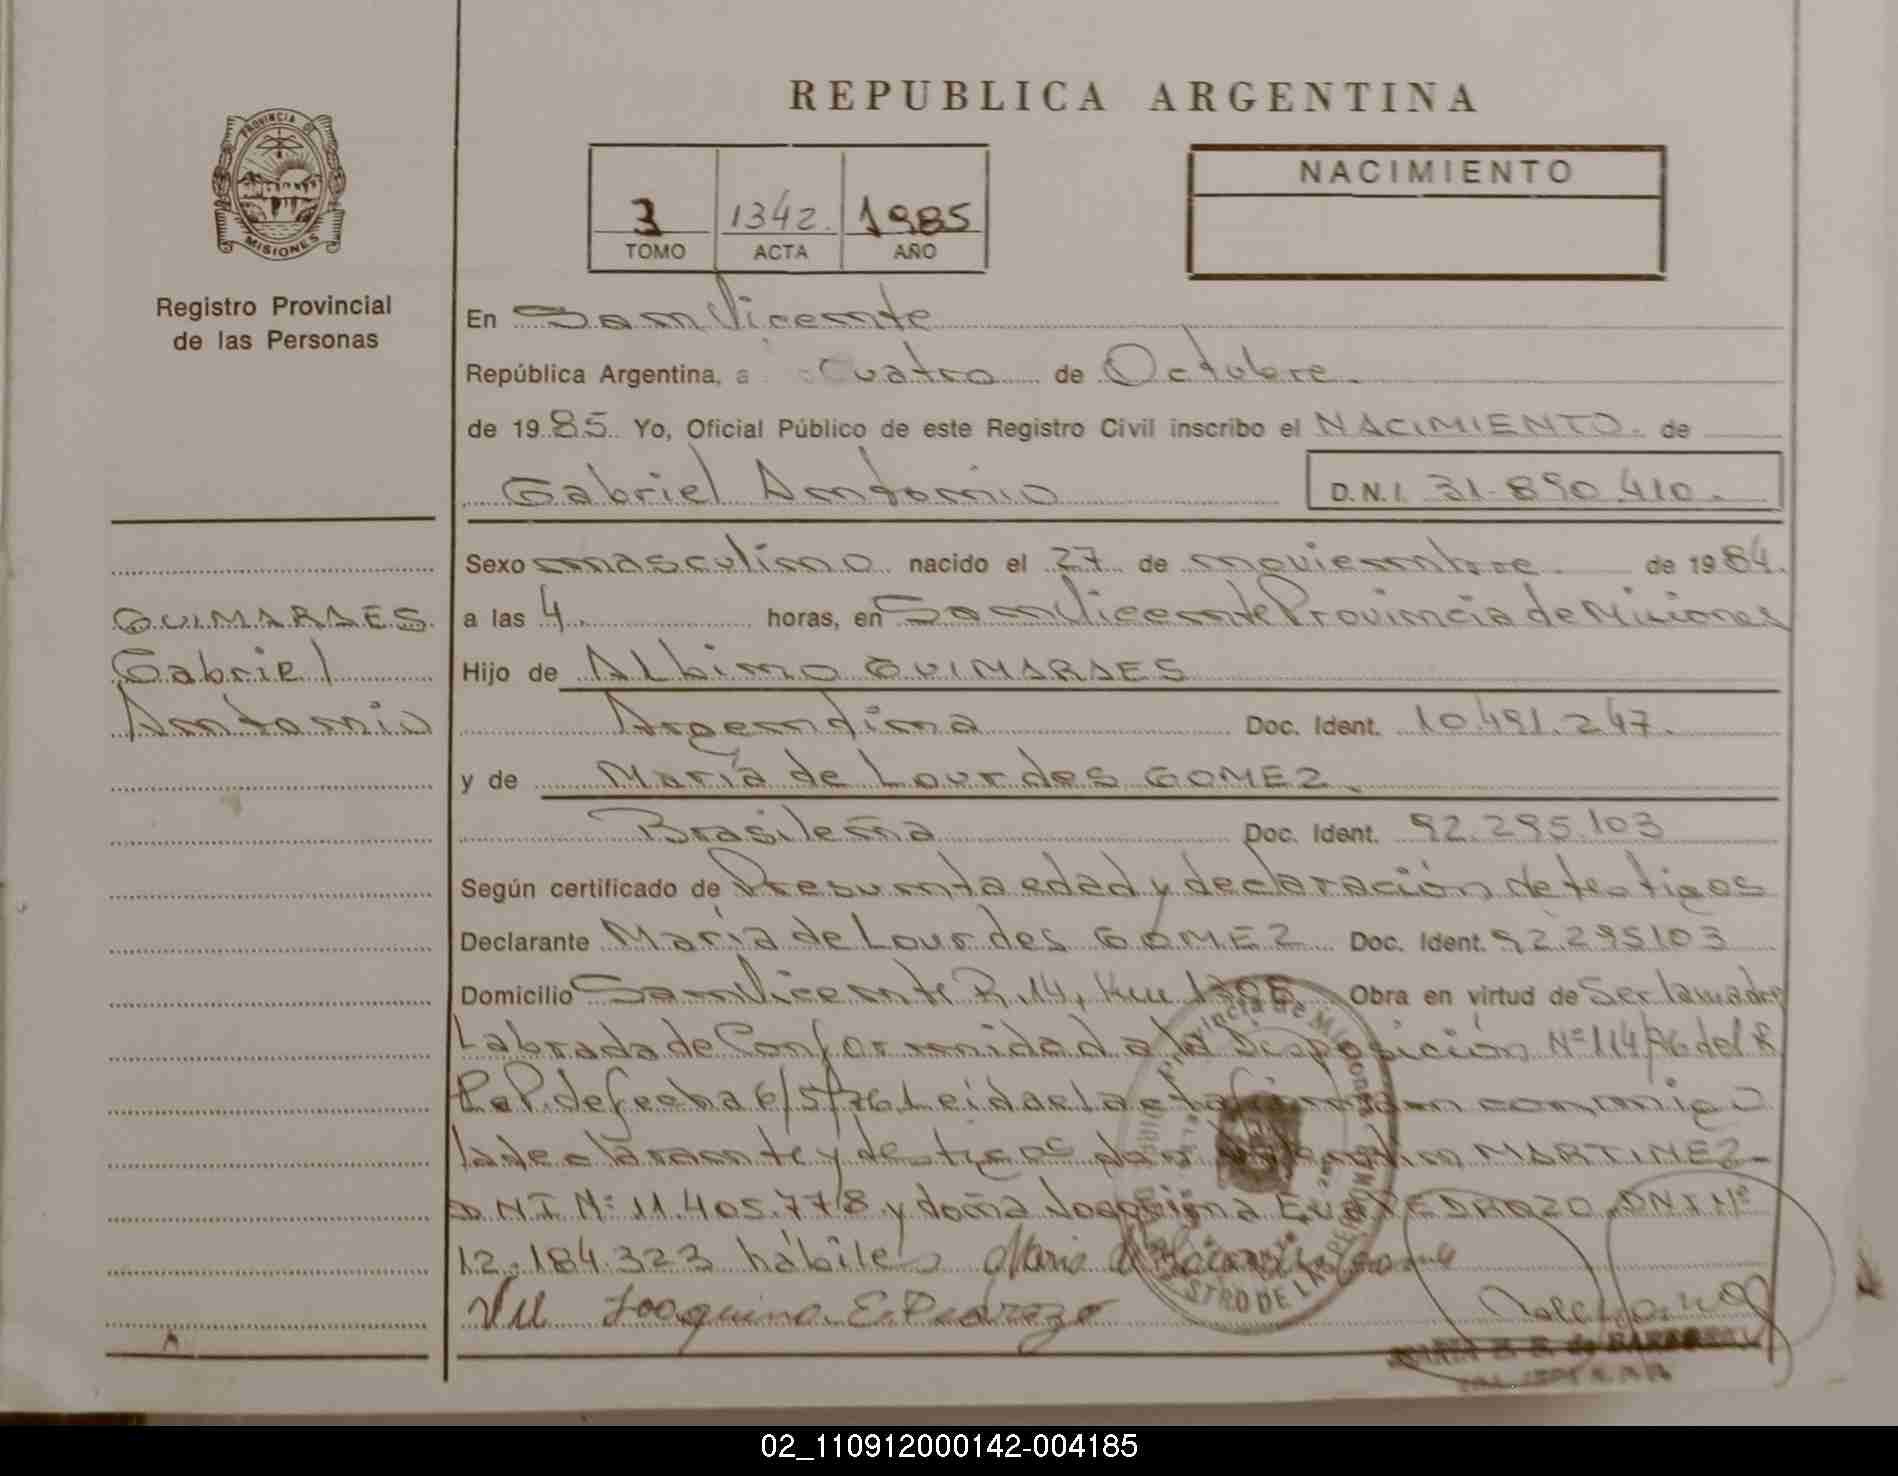 REPUBLICA ARGENTINA
PROVINCIA DE
MISIONES
Registro Provincial
de las Personas
3 1342. 1985
TOMO ACTA AÑO
NACIMIENTO
En San Vicente
República Argentina, a Cuatro de Octubre.
de 1985 Yo, Oficial Público de este Registro Civil inscribo el NACIMIENTO. de
Gabriel Antonio D.N.I. 31.890.410.
Sexo masculino nacido el 27 de noviembre de 1984.
GUIMARAES
Gabriel
Antonio
a las 4. horas, en San Vicente Provincia de Misiones
Hijo de Albino GUIMARAES
Argentina Doc. Ident. 10.491.247.
y de María de Lourdes GOMEZ.
Brasileña Doc. Ident. 92.295.103
Según certificado de Presunta edad y declaración de testigos
Declarante María de Lourdes GOMEZ Doc. Ident. 92.295103
Domicilio San Vicente R.14, Km Obra en virtud de Ser la madre
Labrada de Conformidad a la Disposición Nº 114/76 del R.
P.P. de fecha 6/5/76 Leida el acta firman conmigo
la declarante y testigos don MARTINEZ
DNI Nº 11.405.778 y doña Joaquina Eva PEDROZO DNI Nº
12.184.323 hábiles Maria
VM Joaquina. E. Pedrozo
02_110912000142-004185